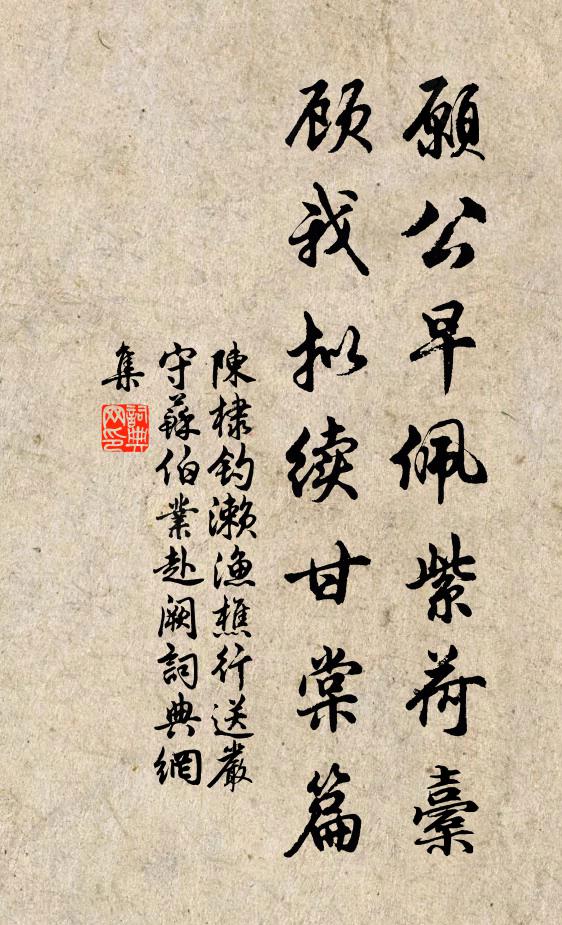 願公早佩紫荷橐
顾我拟续甘棠篇
陳棣釣瀨漁樵行送嚴
守蘇伯業赴阙詞典網
集
詞典
网印